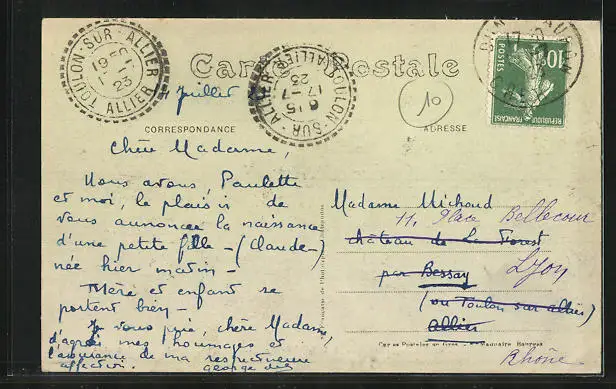 TOULON-SUR-ALLIER
ALLIER
23
TOULON-SUR-ALLIER
(ALLIER)
17-7
23
Carte Postale
10
10
POSTES
REPUBLIQUE FRANÇAISE
Juillet
CORRESPONDANCE
ADRESSE
Chère Madame,
Nous avons, Paulette
et moi, le plaisir de
vous annoncer la naissance
d'une petite fille - (Claude-)
née hier matin -
Mère et enfant se
portent bien -
Je vous prie, chère Madame,
d'agréer mes hommages et
l'assurance de ma respectueuse
affection.
George
Madame Michaud
11, Place Bellecour
château de La Forest
Lyon
par Bessay
(ou Toulon sur allier)
allier
Rhône